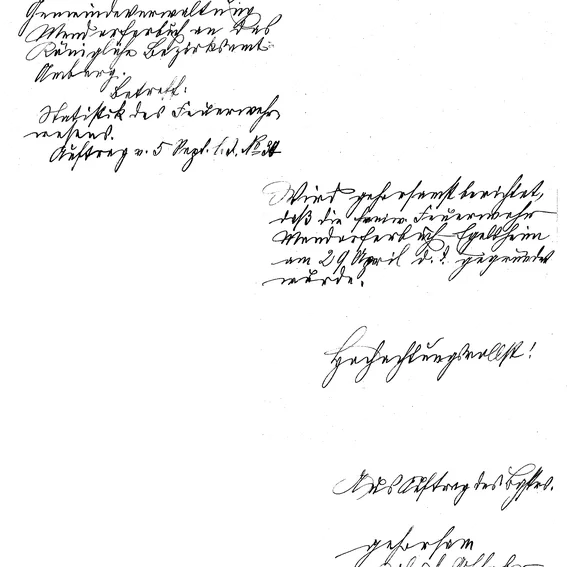 Gemeindeverwaltung
Mendorferbuch an das
Königliche Bezirksamt
Amberg.
Betreff:
Statistik des Feuerwehr
wesens.
Auftrag v. 5 Sept. l. J. No
Wird gehorsamst berichtet,
daß die freiw. Feuerwehr
Mendorferbuch Egelsheim
am 29 April d. J. gegründet
wurde.
Hochachtungsvollst!
Aus Auftrag des Bgstrs.
gehorsam